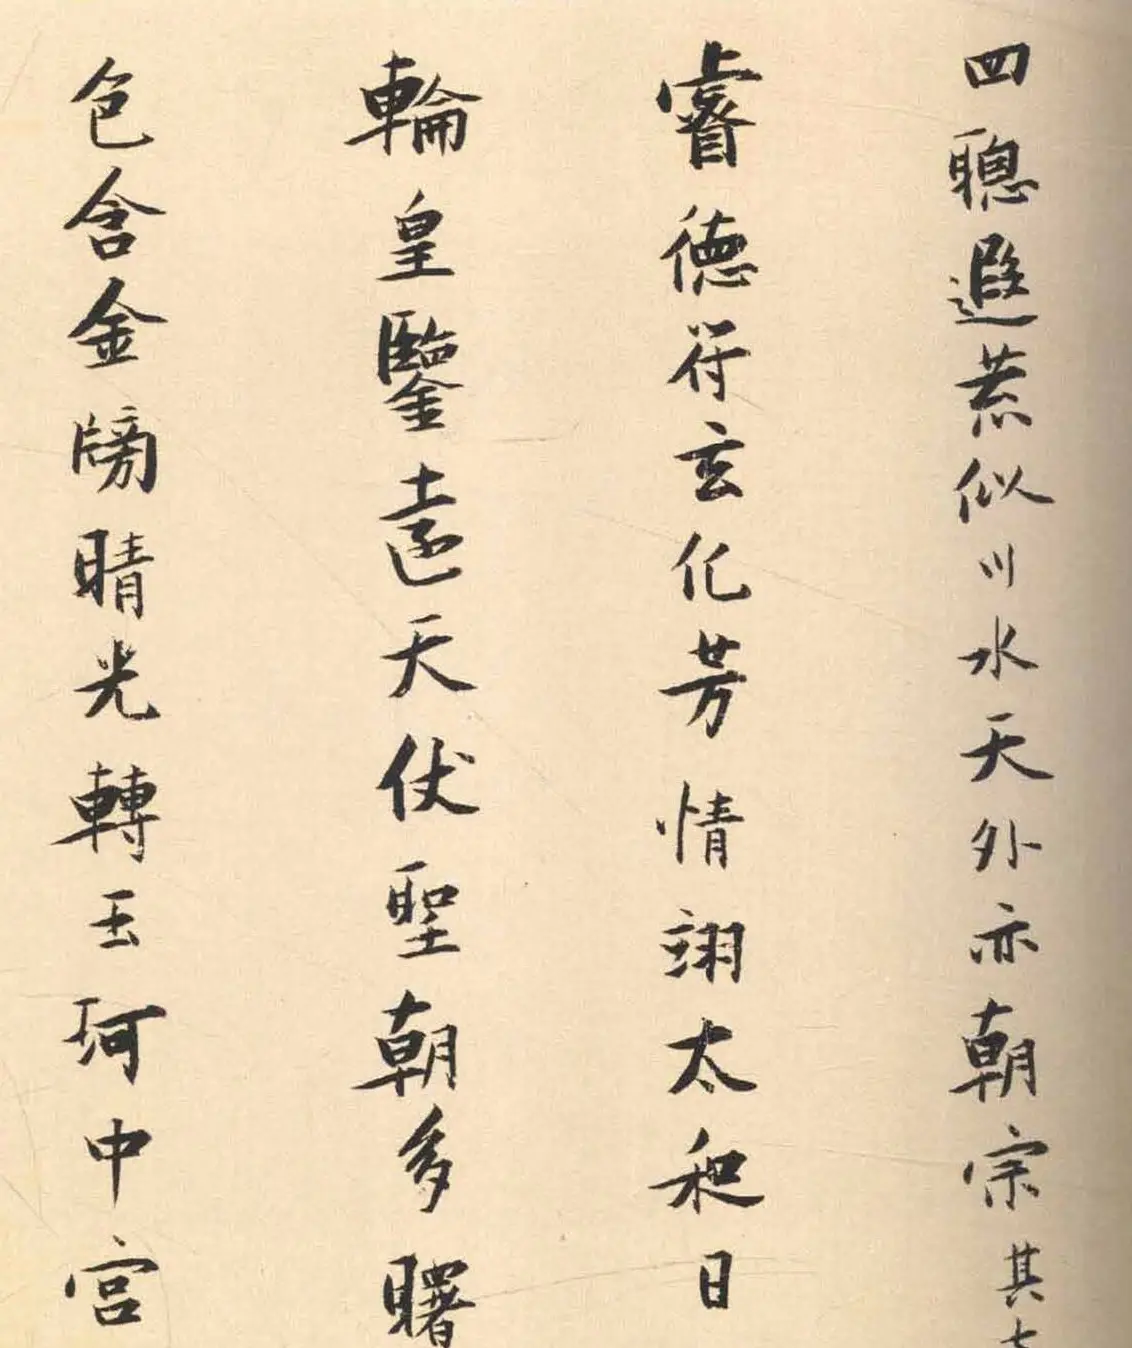 四聰遐荒似川水天外亦朝宗其七
睿德符玄化芳情翊太和日
輪皇鑒遠天伏聖朝多曙
色含金牓晴光轉玉珂中宮